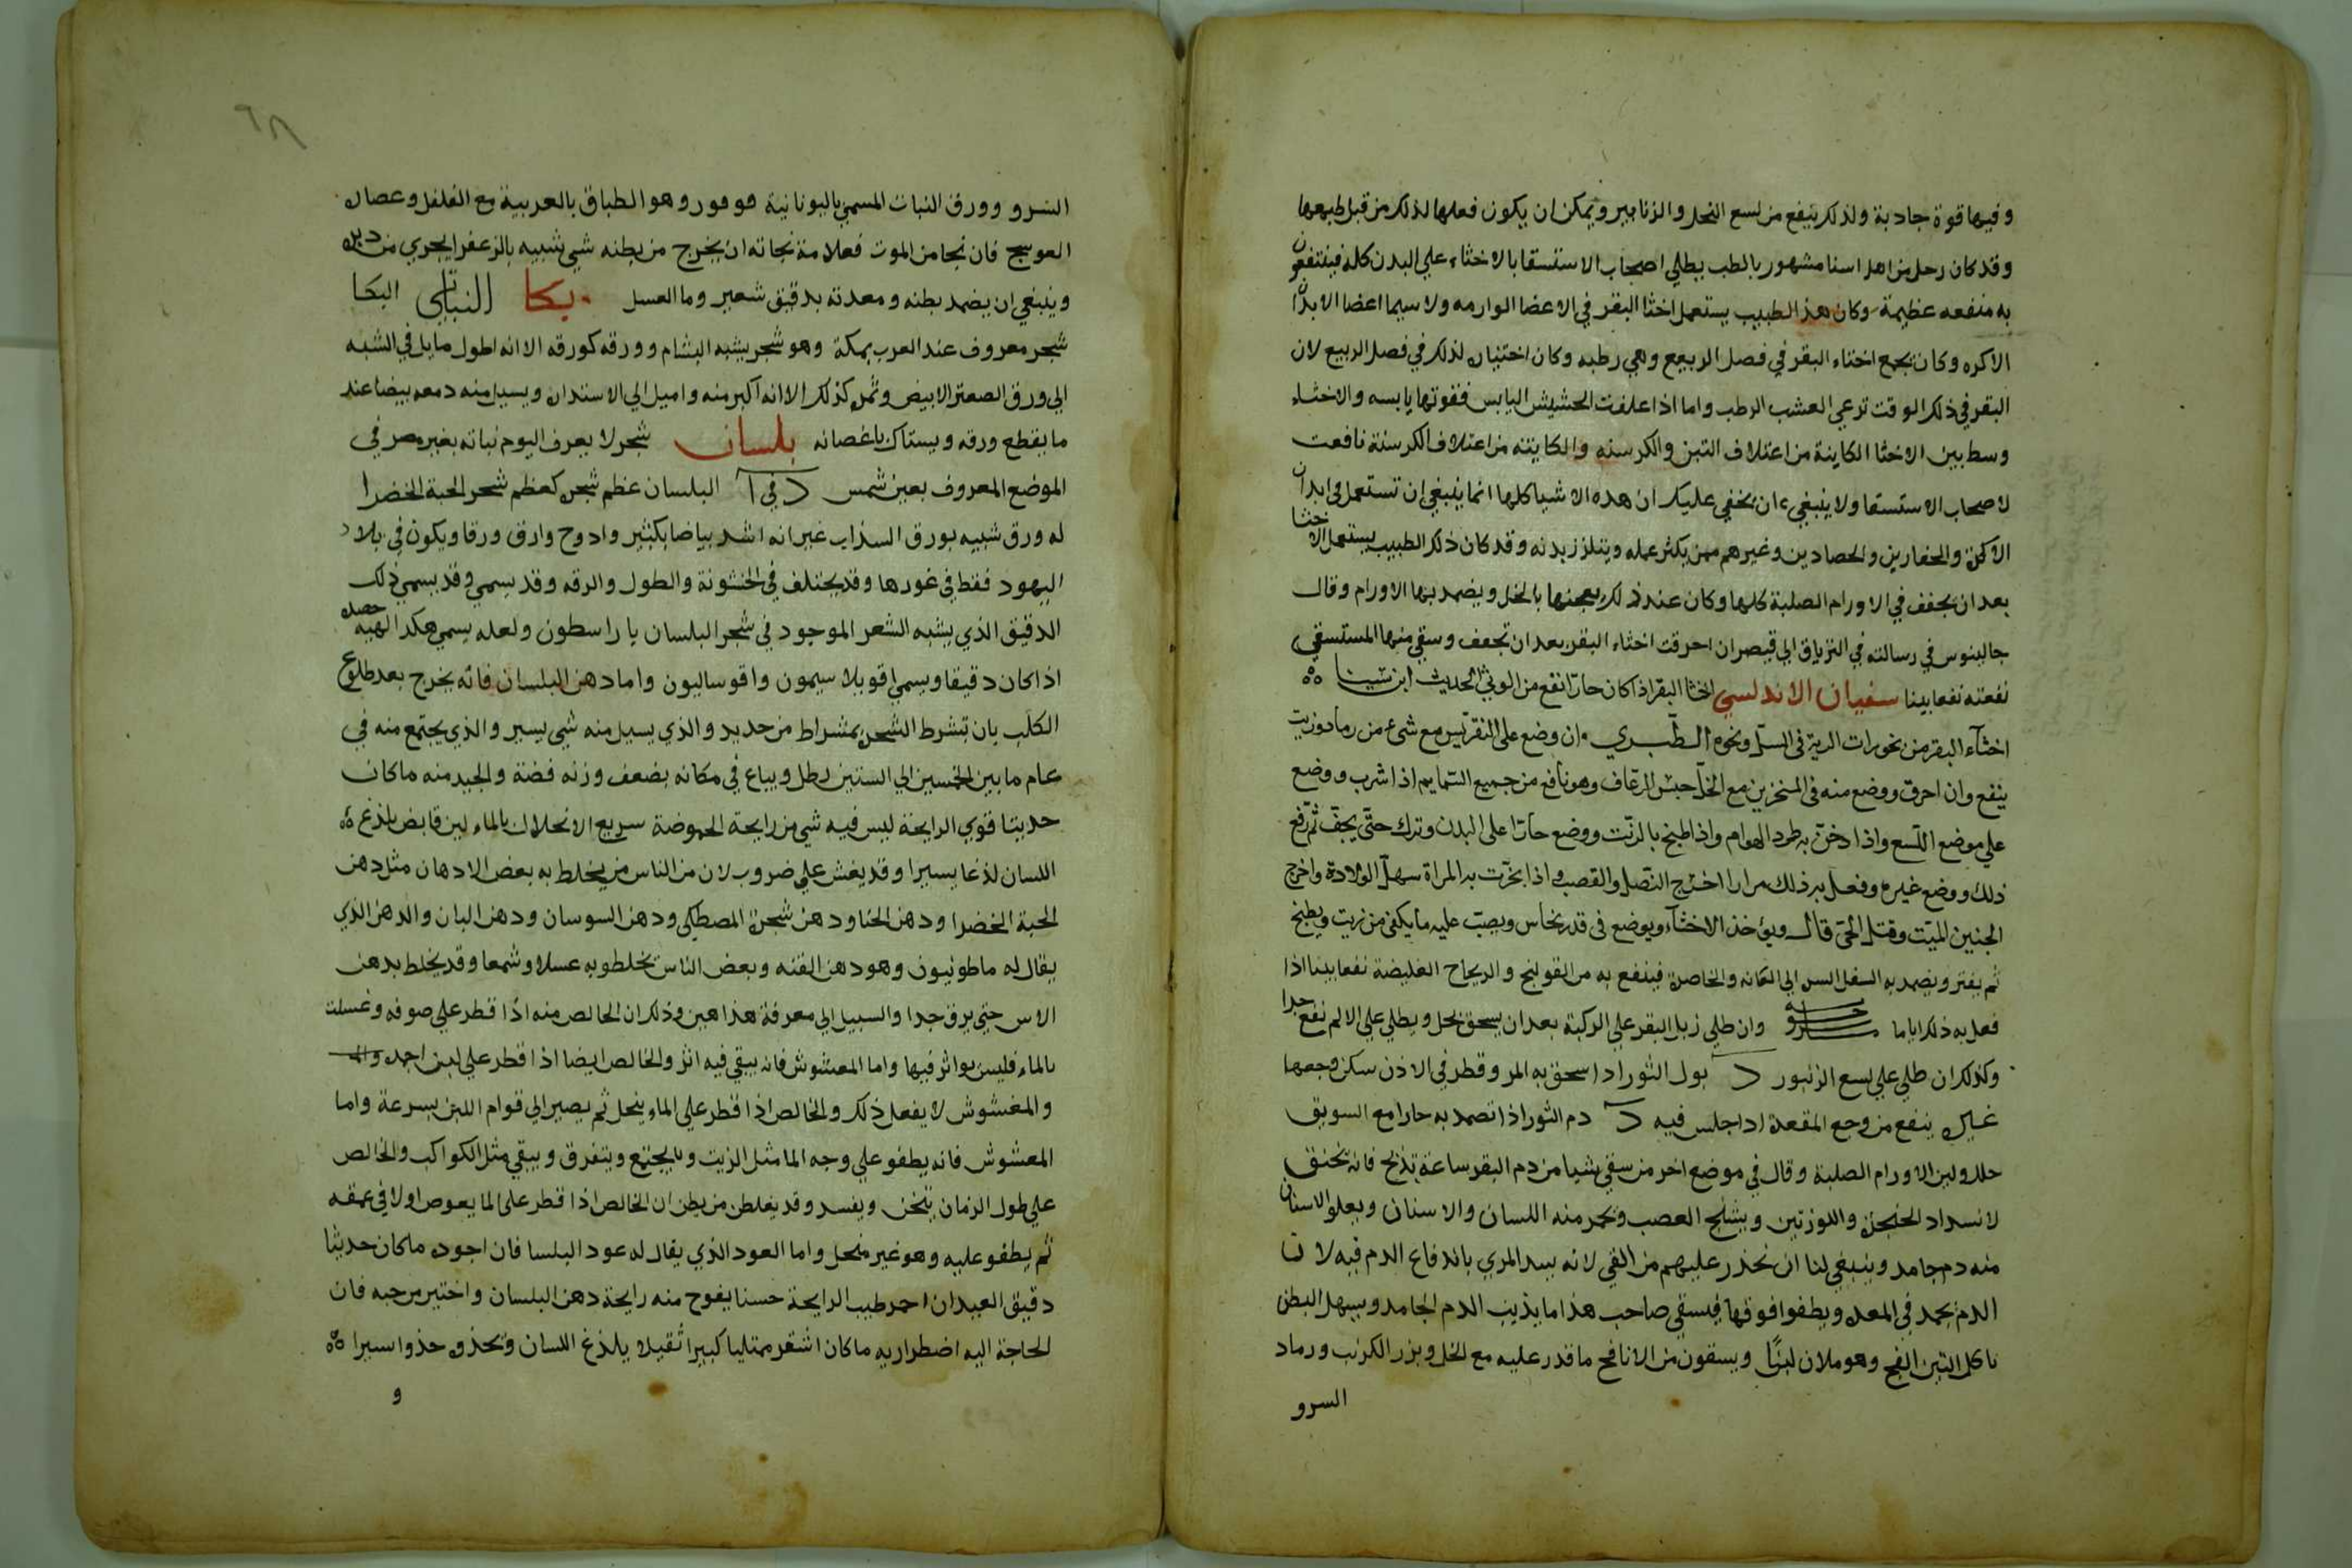 وفيها قوة جادبة ولذلك ينفع من لسع النحل والزنابير ويمكن ان يكون فعلها لذلك من قبل طبعها
وقد كان رجل من اهل اسنا مشهور بالطب يطلي اصحاب الاستسقا بالاخثاء علي البدن كله فينتفعون
به منفعه عظيمة وكان هذا الطبيب يستعمل اخثا البقر في الاعضا الوارمه ولا سيما اعضا الابدان
الاكره وكان يجمع اخثاء البقر في فصل الربيع وهي رطبه وكان اختياره لذلك في فصل الربيع لان
البقر في ذلك الوقت ترعي العشب الرطب واما اذا علفت الحشيش اليابس فقوتها يابسه والاخثاء
وسط بين الاخثا الكاينة من اعتلاف التبن والكرسنه والكاينه من اعتلاف الكرسنة نافعت
لاصحاب الاستسقا ولا ينبغي ان يخفي عليك ان هده الاشيا كلها انما ينبغي ان تستعمل في ابدان
الاكرة والحفارين والحصادين وغيرهم ممن يكثر عمله ويتلزز بدنه وقد كان ذلك الطبيب يستعمل الاخثا
بعد ان يجفف في الاورام الصلبة كلها وكان عند ذلك يعجنها بالخل ويضمد بها الاورام وقال
جالينوس في رسالته في الترياق الي قيصر ان احرقت اخثاء البقر بعد ان تجفف وسقي منها المستسقي
نفعته نفعا بينا سفيان الاندلسي اخثا البقر اذا كان حارا نفع من الوثي الحديث ابن سينا
اخثاء البقر من بخورات الرية في السل ونحوه الطبري وان وضع على النقرس مع شيء من رماد وزيت
ينفع وان احرق ووضع منه في المنخرين مع الخل حبس الرعاف وهو نافع من جميع السمايم اذا شرب ووضع
علي موضع اللسع واذا دخن به طرد الهوام واذا طبخ بالزيت ووضع حارا على البدن وترك حتى يجف ثم رفع
ذلك ووضع غيره وفعل به ذلك مرارا اخرج النصل والقصب واذا بخرت به المراة سهل الولادة واخرج
الجنين الميت وقتل الحي قال ويؤخذ الاخثاء ويوضع في قدر نحاس ويصب عليه ما يكفي من زيت ويطبخ
ثم يفتر ويضمد به السفل السرة الي العانه والخاصرة فينفع به من القولنج والرياح الغليضة نفعا بينا اذا
فعل به ذلك اياما وان طلي زبل البقر علي الركبة بعد ان يسحق بخل ويطلي علي الالم نفع جدا
وكذلك ان طلي علي لسع الزنبور د بول الثور اذا سحق به المر وقطر في الاذن سكن وجعها
غيره ينفع من وجع المقعدة اذا جلس فيه د دم الثور اذا تضمد به حارا مع السويق
حلل ولين الاورام الصلبة وقال في موضع اخر من سقي شيا من دم البقر ساعة يذبح فانه يختنق
لانسداد الحنجرة واللوزتين ويشنج العصب وتحمر منه اللسان والاسنان ويعلو الاسنان
منه دم جامد وينبغي لنا ان نحذر عليهم من القي لانه يسد المري باندفاع الدم فيه لان
الدم يجمد في المعدة ويطفوا فوقها فيسقي صاحب هذا ما يذيب الدم الجامد ويسهل البطن
ناكل التين الفج وهو ملان لبنًا ويسقون من الانافح ما قدر عليه مع الخل وبزر الكرنب ورماد
السرو
السرو وورق النبات المسمي باليونانية هو فور وهو الطباق بالعربية مع الفلفل وعصاره
العوسج فان نجا من الموت فعلامة نجاته ان يخرج من بطنه شي شبيه بالزعفر ايجري من دبره
وينبغي ان يضمد بطنه ومعدته بدقيق شعير وما العسل بكا النباتي البكا
شجر معروف عند العرب بمكة وهو شجر يشبه البشام وورقه كورقه الا انه اطول مايل في الشبه
الي ورق الصعتر الابيض وثمره كذلك الا انه اكبر منه واميل الي الاستدارة ويسيل منه دمعه بيضا عند
ما يقطع ورقه ويستاك باغصانه بلسان شجر لا يعرف اليوم نباته بغير مصر في
الموضع المعروف بعين شمس د في ا البلسان عظم شجره كعظم شجر الحبة الخضرا
له ورق شبيه بورق السذاب غير انه اشد بياضا بكثير وادوح وارق ورقا ويكون في بلاد
اليهود فقط في غورها وقد يختلف في الخشونة والطول والرقه وقد يسمي وقد يسمي ذلك
الدقيق الذي يشبه الشعر الموجود في شجر البلسان يا راسطون ولعله يسمي هكدا لهيه حصده
اذا كان دقيقا ويسمي اقوبلا سيمون واقو سالبون واما دهن البلسان فانه يخرج بعد طلوع
الكلب بان تشرط الشجره بمشراط من حديد والذي يسيل منه شي يسير والذي يجتمع منه في
عام ما بين الخمسين الي الستين رطل ويباع في مكانه بضعف وزنه فضة والجيد منه ما كان
حديثا قوي الرايحة ليس فيه شي من رايحة الحموضة سريع الانحلال بالماء لين قابض يلذع
اللسان لذعا يسيرا وقد يغش علي ضروب لان من الناس من يخلط به بعض الادهان مثل دهن
الحبة الخضرا ودهن الحنا ودهن شجرة المصطكي ودهن السوسان ودهن البان والدهن الذي
يقال له ماطونيون وهو دهن القنه وبعض الناس يخلطو به عسلا وشمعا وقد يخلط بدهن
الاس حتي يرق جدا والسبيل الي معرفة هذا هين وذلك ان الخالص منه اذا قطر علي صوفه وغسلت
بالماء فليس يواثر فيها واما المعشوش فانه يبقي فيه اثر والخالص ايضا اذا قطر علي لبن اجمده
والمغشوش لا يفعل ذلك والخالص اذا قطر علي الماء ينحل ثم يصير الي قوام اللبن بسرعة واما
المعشوش فانه يطفو علي وجه الما مثل الزيت ويجتمع ويتفرق ويبقي مثل الكواكب والخالص
علي طول الزمان يتخن ويفسد وقد يغلط من يظن ان الخالص اذا قطر على الما يعوص اولا في عمقه
ثم يطفو عليه وهو غير منحل واما العود الذي يقال له عود البلسا فان اجوده ما كان حديثا
دقيق العيدان احمر طيب الرايحة حسنا يفوح منه رايحة دهن البلسان واختير من حبه فان
الحاجة اليه اضطراريه ما كان اشقر ممتليا كبيرا ثقيلا يلذغ اللسان ويحذو حذوا يسيرا
و
٦٨